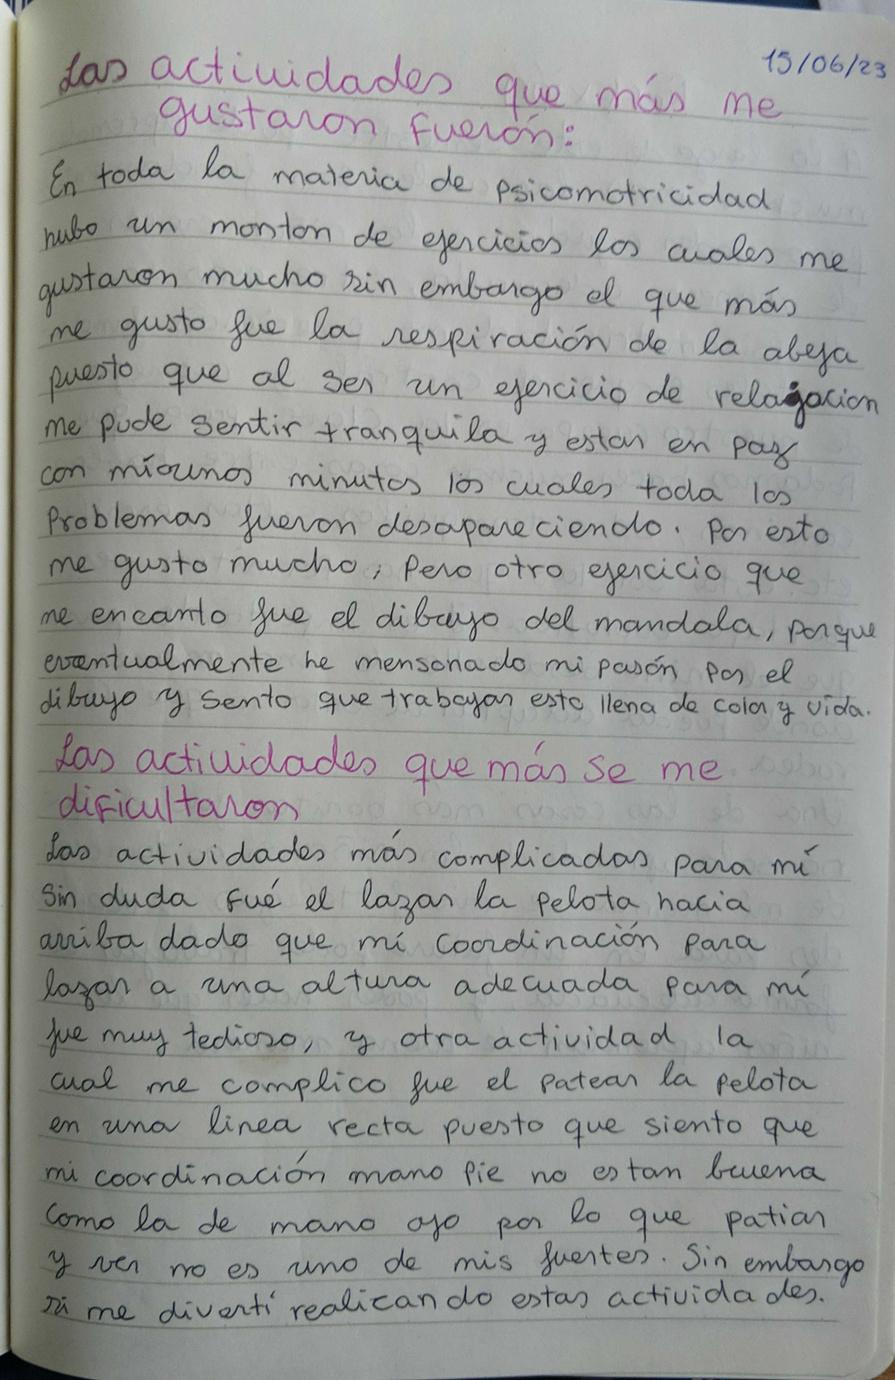 15/06/23
Las actividades que más me
gustaron fuerón:
En toda la materia de psicomotricidad
hubo un monton de ejercicios los cuales me
gustaron mucho sin embargo el que más
me gusto fue la respiración de la abeja
puesto que al ser un ejercicio de relajacion
me pude sentir tranquila y estar en paz
con mi unos minutos los cuales toda los
Problemas fueron desapareciendo. Por esto
me gusto mucho, Pero otro ejercicio que
me encanto fue el dibujo del mandala, porque
eventualmente he mensonado mi pasón por el
dibujo y sento que trabajar esto llena de color y vida.
Las actividades que más se me
dificultaron
Las actividades más complicadas para mí
sin duda fué el lazar la pelota hacia
arriba dado que mí coordinación para
lazar a una altura adecuada para mí
fue muy tedioso, y otra actividad la
cual me complico fue el patear la pelota
en una linea recta puesto que siento que
mi coordinación mano pie no es tan buena
como la de mano ojo por lo que patiar
y ver no es uno de mis fuertes. Sin embargo
si me divertí realicando estas actividades.